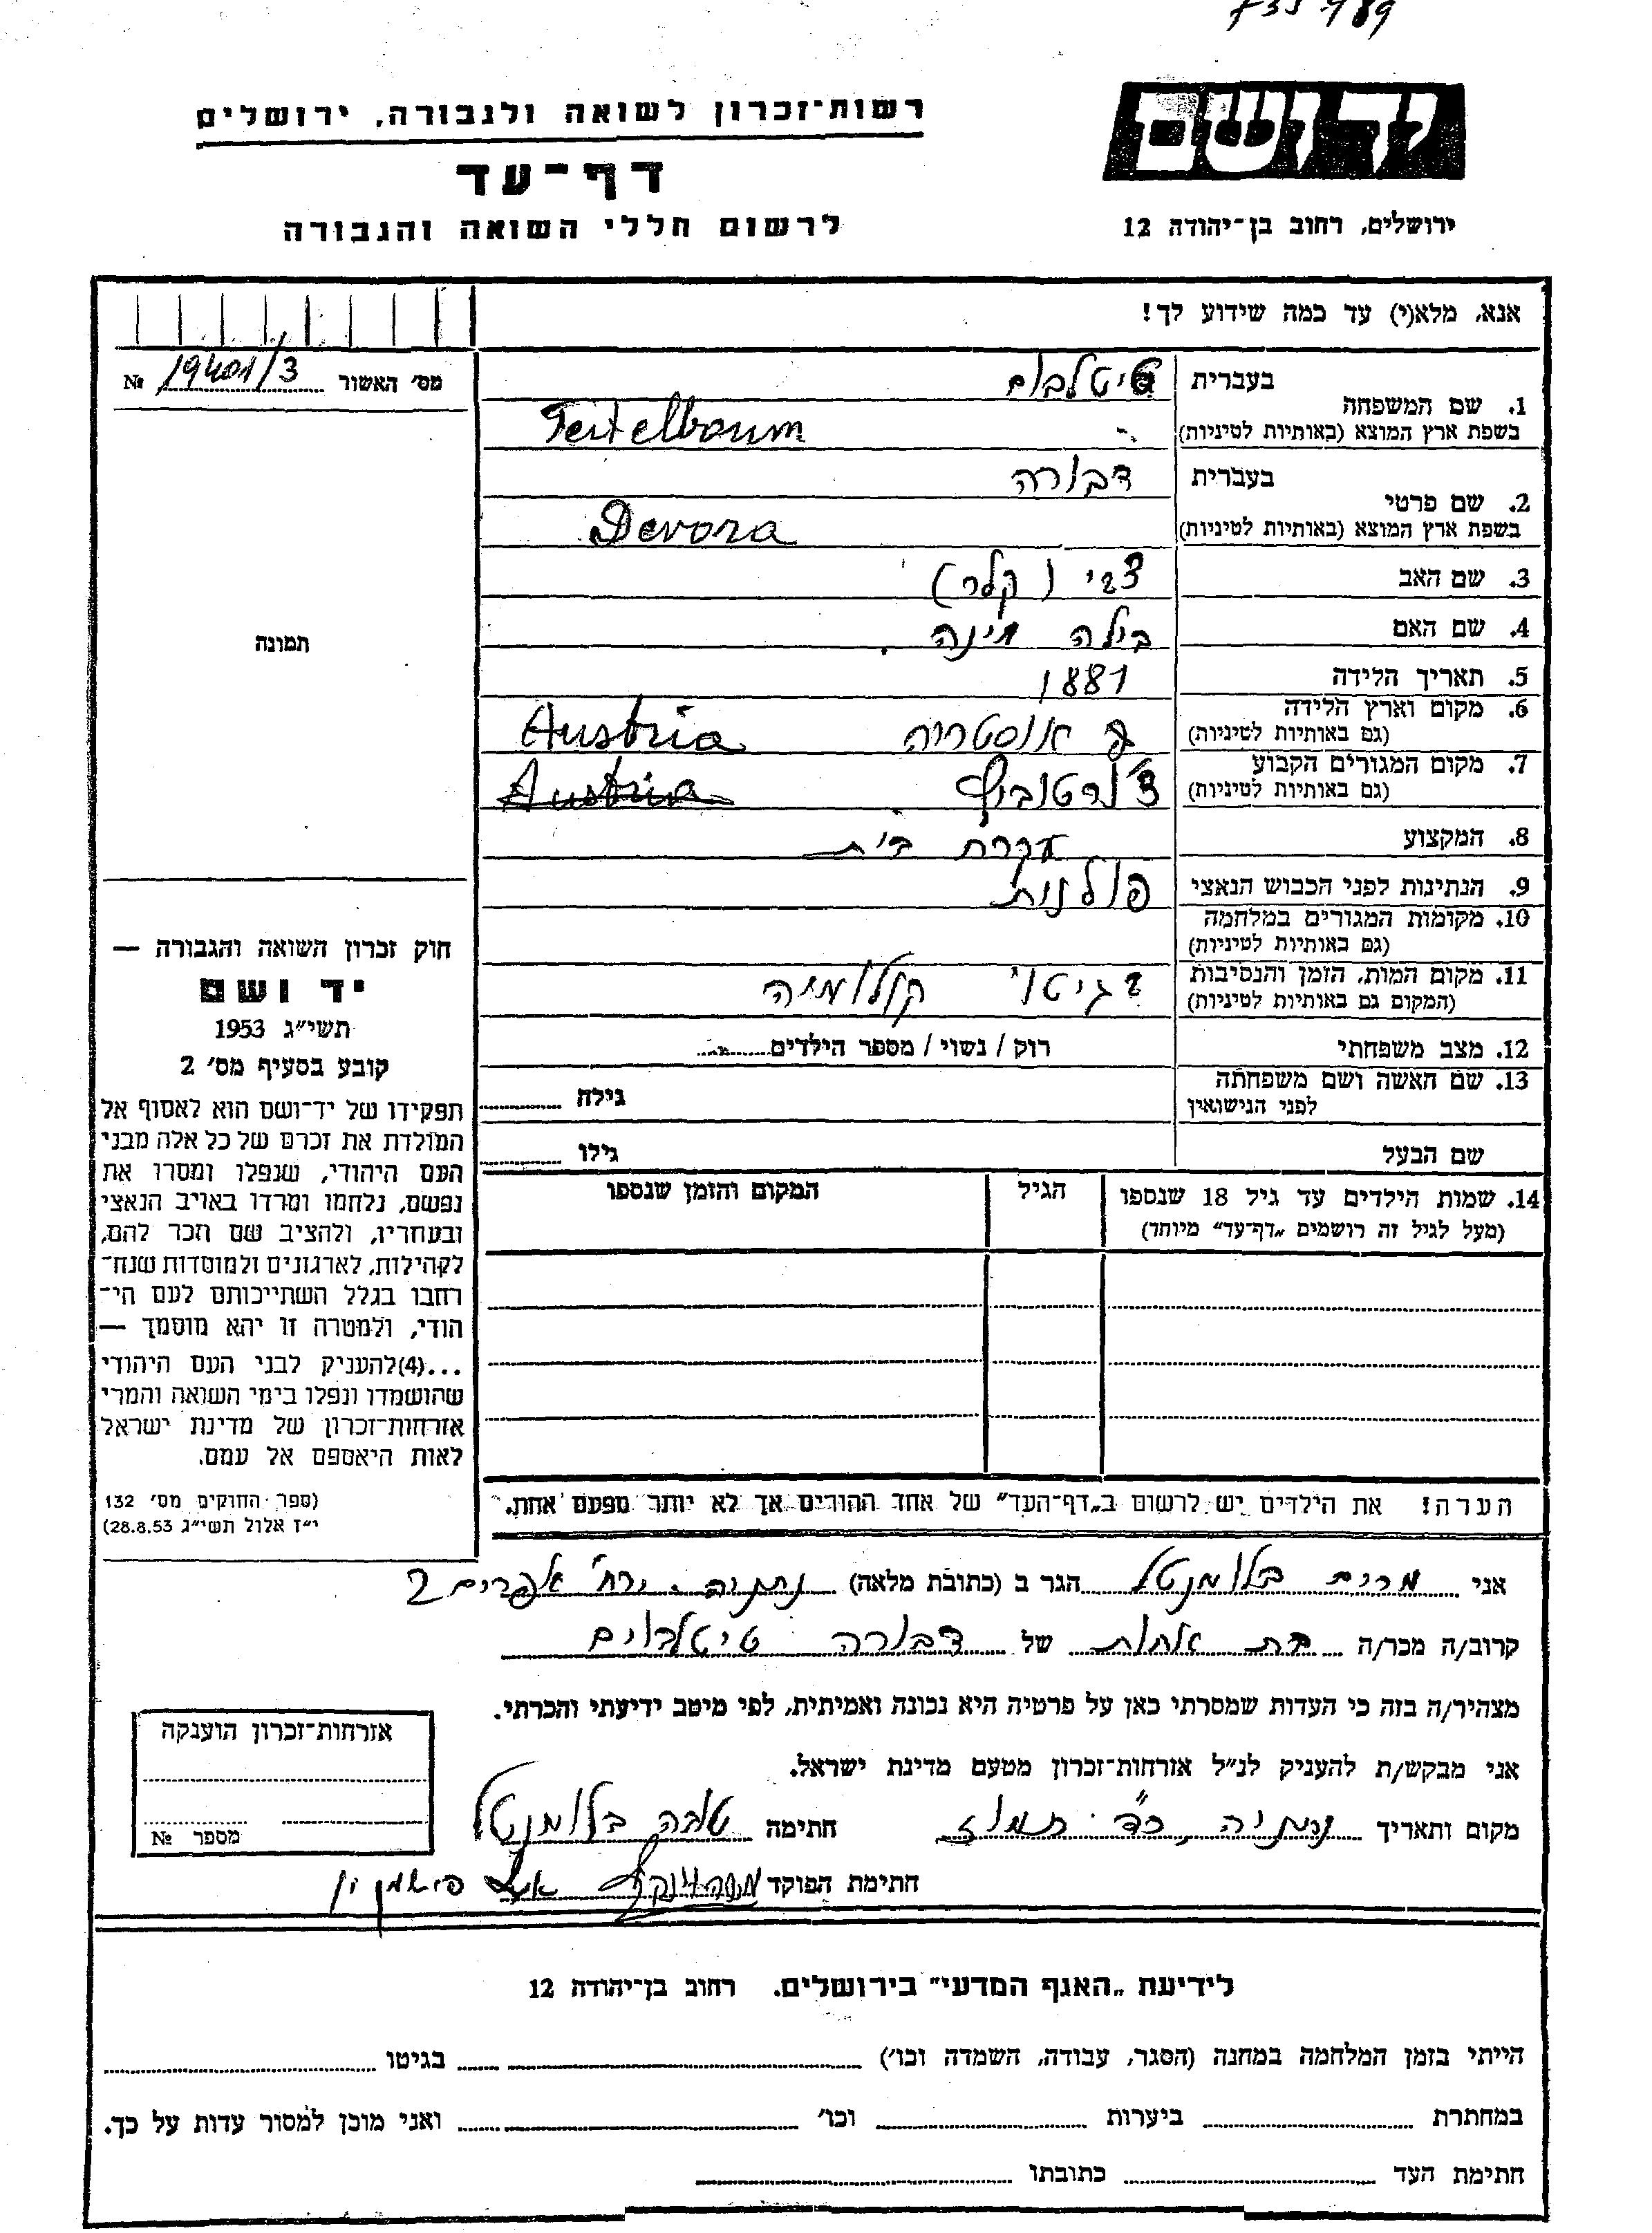 רשות־זכרון לשואה ולגבורה, ירושלים
דף־עד
לרשום חללי השואה והגבורה
יד ושם
ירושלים, רחוב בן־יהודה 12
אנא, מלא(י) עד כמה שידוע לך!
מס׳ האשור № 19401/3
תמונה
1. שם המשפחה
בעברית טיטלבוים
בשפת ארץ המוצא (באותיות לטיניות) Teitelbaum
2. שם פרטי
בעברית דבורה
בשפת ארץ המוצא (באותיות לטיניות) Devora
3. שם האב צבי (קלר)
4. שם האם בילה חינה
5. תאריך הלידה 1881
6. מקום וארץ הלידה
(גם באותיות לטיניות) אוסטריה Austria
7. מקום המגורים הקבוע
(גם באותיות לטיניות) צ׳ורטוביץ Austria
8. המקצוע עקרת בית
9. הנתינות לפני הכבוש הנאצי פולנית
10. מקומות המגורים במלחמה
(גם באותיות לטיניות)
11. מקום המות, הזמן והנסיבות
(המקום גם באותיות לטיניות) בגיטו קולומיה
12. מצב משפחתי רוק / נשוי / מספר הילדים
13. שם האשה ושם משפחתה
לפני הנישואין גילה
שם הבעל גילו
14. שמות הילדים עד גיל 18 שנספו הגיל המקום והזמן שנספו
(מעל לגיל זה רושמים „דף־עד” מיוחד)
הערה! את הילדים יש לרשום ב„דף־העד” של אחד ההורים אך לא יותר מפעם אחת.
חוק זכרון השואה והגבורה —
יד ושם
תשי״ג 1953
קובע בסעיף מס׳ 2
תפקידו של יד־ושם הוא לאסוף אל
המולדת את זכרם של כל אלה מבני
העם היהודי, שנפלו ומסרו את
נפשם, נלחמו ומרדו באויב הנאצי
ובעחריו, ולהציב שם וזכר להם,
לקהילות, לארגונים ולמוסדות שנח־
רחבו בגלל השתייכותם לעם הי־
הודי, ולמטרה זו יהא מוסמך —
...(4)להעניק לבני העם היהודי
שהושמדו ונפלו בימי השואה והמרי
אזרחות־זכרון של מדינת ישראל
לאות היאספם אל עמם.
(ספר החוקים מס׳ 132
י״ז אלול תשי״ג 28.8.53)
אני מרים בלומנטל הגר ב (כתובת מלאה) נתניה, רח׳ אפרים 2
קרוב/ה מכר/ה בת אחות של דבורה טיטלבוים
מצהיר/ה בזה כי העדות שמסרתי כאן על פרטיה היא נכונה ואמיתית, לפי מיטב ידיעתי והכרתי.
אני מבקש/ת להעניק לנ״ל אזרחות־זכרון מטעם מדינת ישראל.
מקום ותאריך נתניה, כ״ד תמוז חתימה בלומנטל
חתימת הפוקד
אזרחות־זכרון הוענקה
מספר №
לידיעת „האגף המדעי” בירושלים. רחוב בן־יהודה 12
הייתי בזמן המלחמה במחנה (הסגר, עבודה, השמדה וכו׳) בגיטו
במחתרת ביערות וכו׳ ואני מוכן למסור עדות על כך.
חתימת העד כתובתו